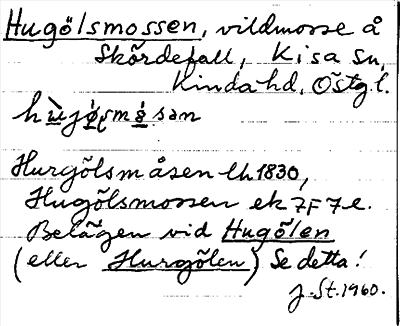 Hugölsmossen, vildmosse å
Skördefall, Kisa sn,
Kinda hd, Östg.l.
hùjǫsmǫ́san
Hurgölsmåsen lh 1830,
Hugölsmossen ek 7F7e.
Belägen vid Hugölen
(eller Hurgölen) Se detta!
J.St. 1960.